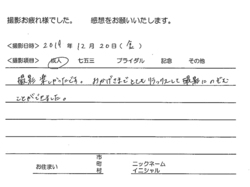 撮影お疲れ様でした。 感想をお願いいたします。
<撮影日時> 2019年 12月 20日(金)
<撮影項目> 成人 七五三 ブライダル 記念 その他
撮影 楽しかったです。おかげさまでとてもリラックスして撮影にいどむ
ことができました。
お住まい
市
町
村
ニックネーム
イニシャル